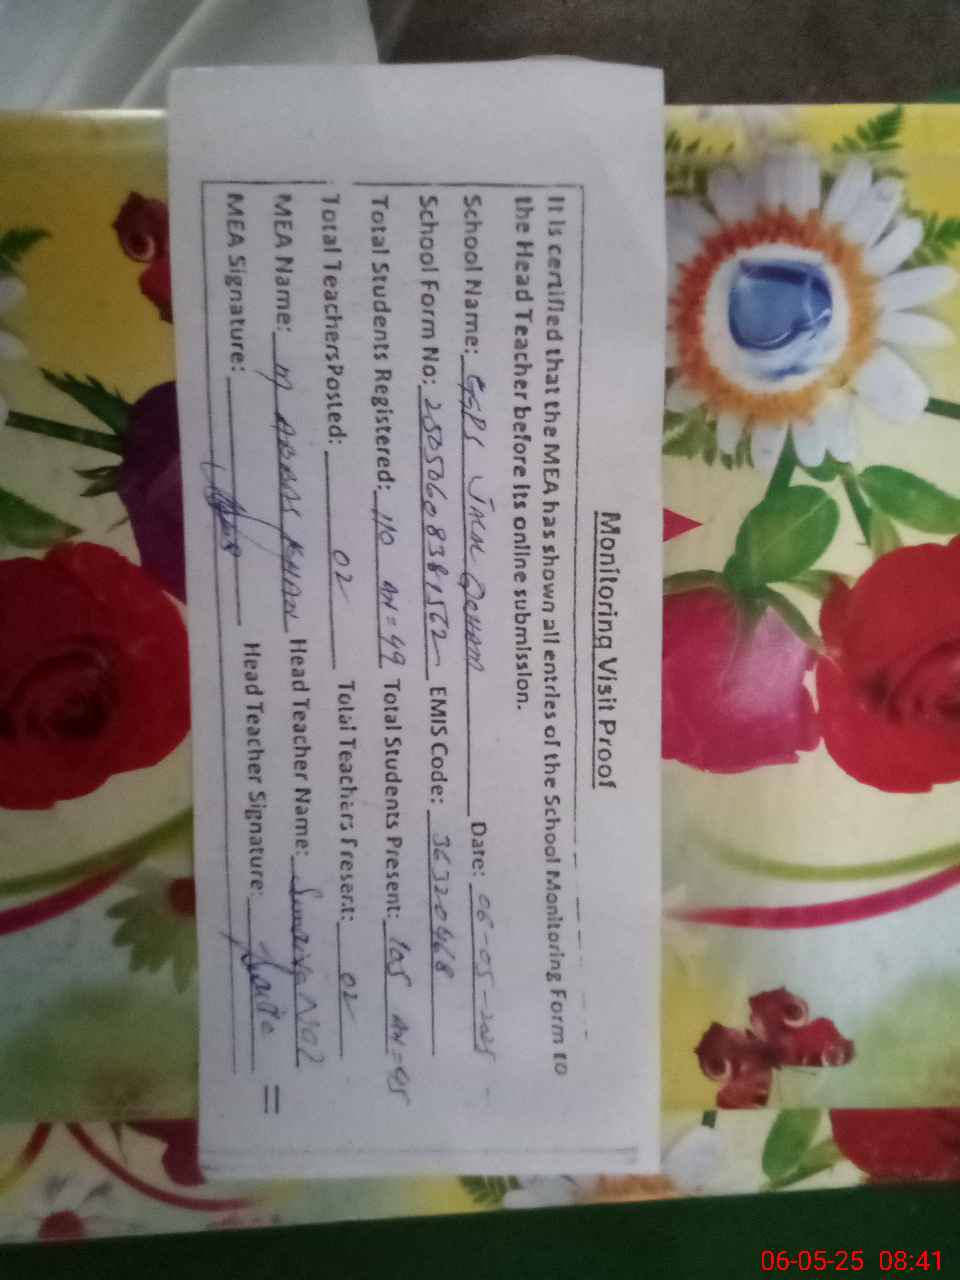 Monitoring Visit Proof
It is certified that the MEA has shown all entries of the School Monitoring Form to
the Head Teacher before its online submission.
School Name: GGPS Date: 06-05-2025
School Form No: 25050608381562 EMIS Code: 36320468
Total Students Registered: 110 AN=49 Total Students Present: 105 AN=45
Total Teachers Posted: 02 Total Teachers Present: 02
MEA Name: M ABBAS KHAN Head Teacher Name:
MEA Signature: Head Teacher Signature:
06-05-25 08:41